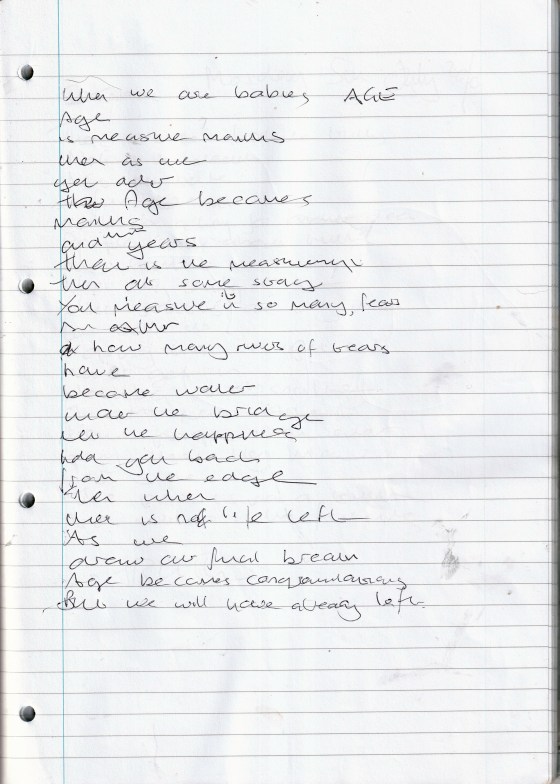 When we are babies AGE
Age
is measure months
then as we
get older
Age becomes
months
and into years
then is the measurement
then at some stage
You measure it in so many fears
how many rivers of tears
have
become water
under the bridge
let the happiness
hold you back
from the edge
then when
there is no life left
As we
draw our final breath
Age becomes congratulations
But we will have already left.